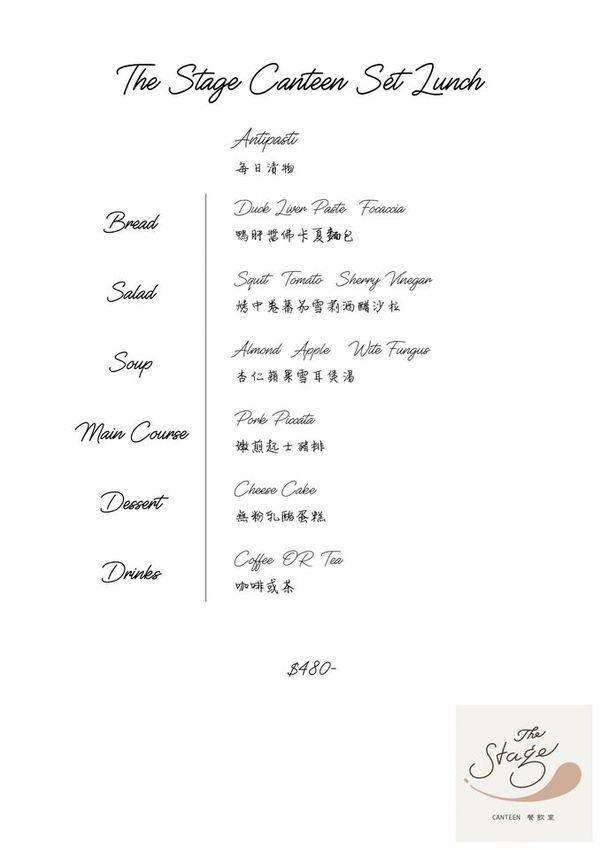 The Stage Canteen Set Lunch
Antipasti
每日漬物
Bread
Duck Liver Paste Focaccia
鴨肝醬佛卡夏麵包
Salad
Squit Tomato Sherry Vinegar
烤中卷蕃茄雪莉酒醋沙拉
Soup
Almond Apple Wite Fungus
杏仁蘋果雪耳煲湯
Main Course
Pork Piccata
嫩煎起士豬排
Dessert
Cheese Cake
無粉乳酪蛋糕
Drinks
Coffee OR Tea
咖啡或茶
$480-
The
Stage
CANTEEN 餐飲室